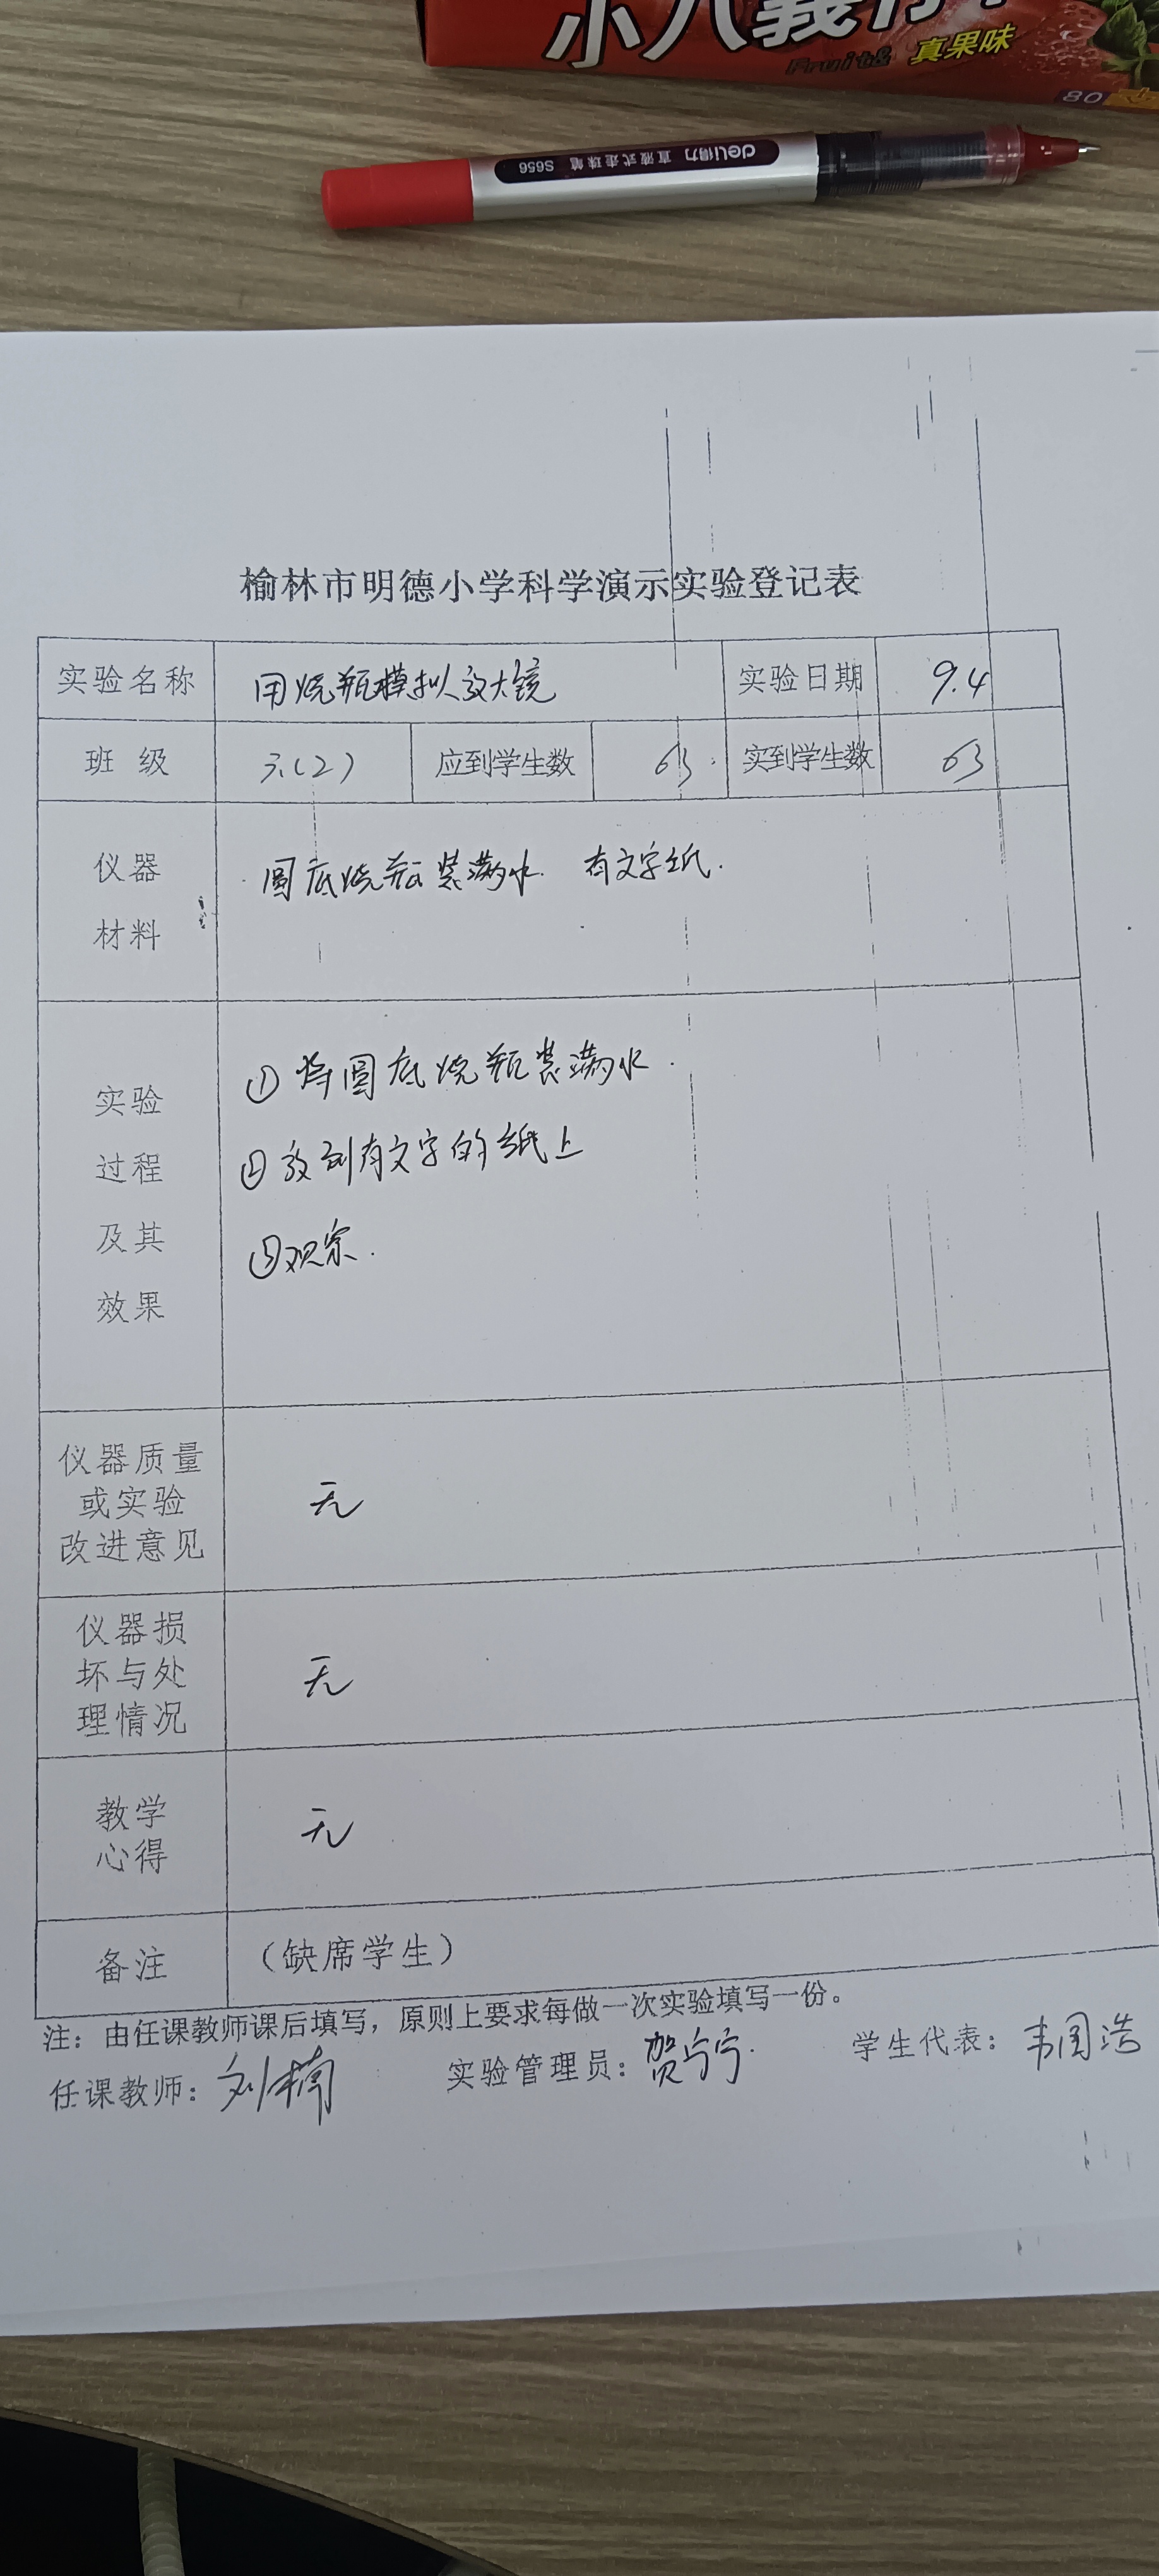 小八義
Fruit& 真果味
80
deli得力 直液式走珠笔 S656
榆林市明德小学科学演示实验登记表
实验名称 用烧瓶模拟放大镜 实验日期 9.4
班 级 六(2) 应到学生数 63 实到学生数 63
仪器
材料
圆底烧瓶装满水. 有文字纸.
实验
过程
及其
效果
①将圆底烧瓶装满水.
②放到有文字的纸上
③观察.
仪器质量
或实验
改进意见
无
仪器损
坏与处
理情况
无
教学
心得
无
备注 （缺席学生）
注：由任课教师课后填写，原则上要求每做一次实验填写一份。
任课教师：刘楠 实验管理员：贺宁宁. 学生代表：韦国浩